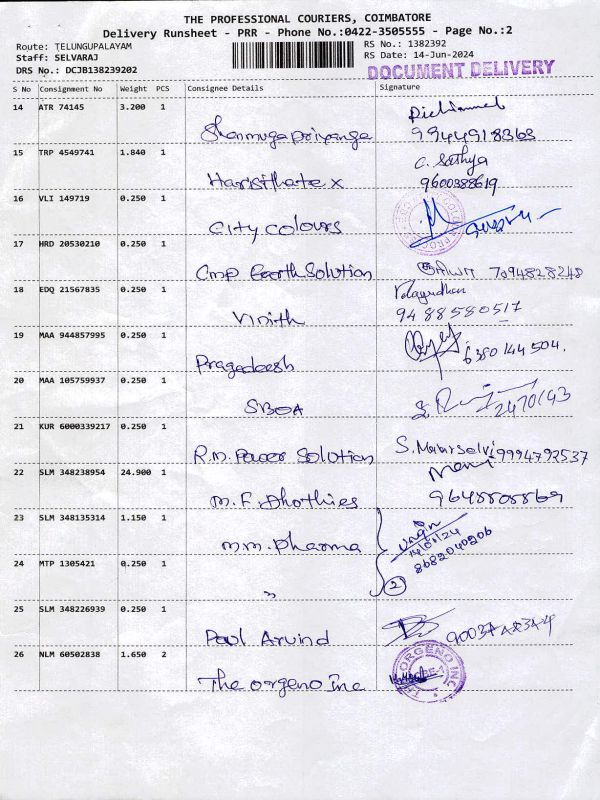 THE PROFESSIONAL COURIERS, COIMBATORE
Delivery Runsheet - PRR - Phone No.:0422-3505555 - Page No.:2
Route: TELUNGUPALAYAM
Staff: SELVARAJ
DRS No.: DCJB138239202
RS No.: 1382392
RS Date: 14-Jun-2024
DOCUMENT DELIVERY
S No Consignment No Weight PCS Consignee Details Signature
14 ATR 74145 3.200 1
Shanmugapriyanga 9944918363
15 TRP 4549741 1.840 1
C. Sathya
Harisithatex 9600388619
16 VLI 149719 0.250 1
City colours
17 HRD 20530210 0.250 1
Cmp Earth Solution 7094828248
18 EDQ 21567835 0.250 1
Velayudhan
Vinith 9488580517
19 MAA 944857995 0.250 1
Pragadeesh 6380144504.
20 MAA 105759937 0.250 1
SBOA 2470143
21 KUR 6000339217 0.250 1
R.M. Power Solution 9994792537
22 SLM 348238954 24.900 1
M.F. Dhothies 9648808869
23 SLM 348135314 1.150 1
M.M. Pharma
14/6/24
8682040206
24 MTP 1305421 0.250 1
" 2
25 SLM 348226939 0.250 1
Paul Arvind
26 NLM 60502838 1.650 2
The Orgeno Inc
THE ORGENO INC